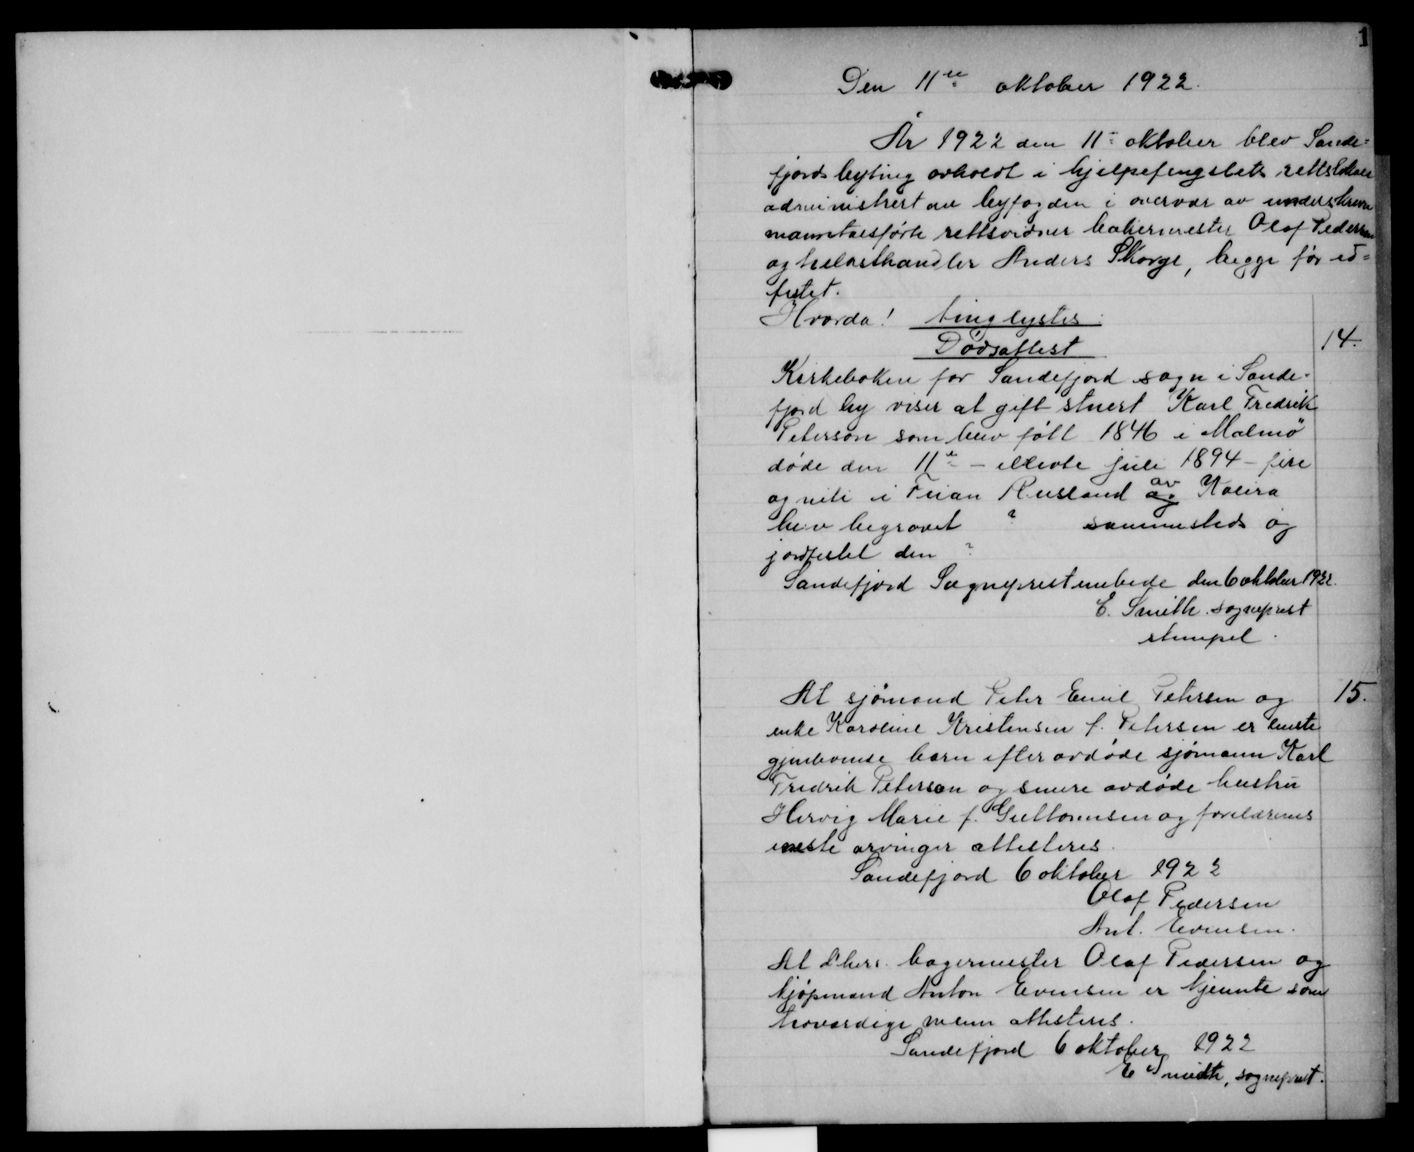 1
Den 11te oktober 1922.
År 1922 den 11: oktober blev Sande-
fjords byting avholdt i hjelpefengslets rettslokale
administrert av byfogden i overvær av underskrevne
manntalsførte rettsvidner bakermester Olaf Pedersen
og trelasthandler Anders Skorge, begge før ed-
festet.
Hvorda! tinglystes:
Dødsattest
14.
Kirkeboken for Sandefjord sogn i Sande-
fjord by viser at gift stuert Karl Fredrik
Peterson som blev født 1846 i Malmø
døde den 11te - ellevte juli 1894 - fire
og niti i Rusland av Kolera
blev begravet ? sammesteds og
jordfestet den ?
Sandefjord Sogneprestembede den 6 oktober 1922.
E. Smith. sogneprest
stempel.
At sjømand Peter Emil Petersen og
15.
enke Karoline Kristensen f. Petersen er eneste
gjenlevende barn efter avdøde sjømann Karl
Fredrik Peterson og senere avdøde hustru
Hervig Marie f. Guttormsen og forældrenes
eneste arvinger attesteres.
Sandefjord 6 oktober 1922
Olaf Pedersen
Ant. Evensen.
At dhrr. bagermester Olaf Pedersen og
kjøpmand Anton Evensen er kjennte som
troverdige menn attesteres.
Sandefjord 6 oktober 1922
E Smith, sogneprest.